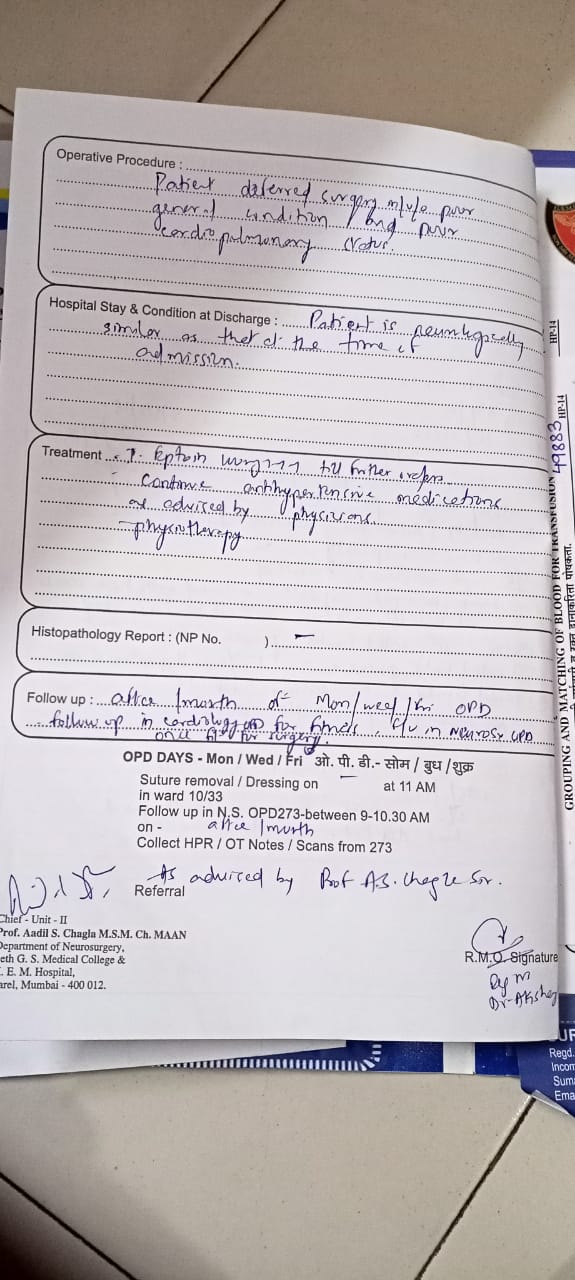 Operative Procedure :
Patient deferred surgery i/v/o poor
general condition and poor
cardiopulmonary status
Hospital Stay & Condition at Discharge : Patient is neurologically
similar as that at the time of
admission.
Treatment T. Eptoin till further orders
- Continue antihypertensive medications
as advised by physicians
- physiotherapy
Histopathology Report : (NP No. ) –
Follow up : after 1 month on Mon/wed/Fri OPD
follow up in cardiology OPD for fitness, f/u in Neurosx OPD
once fit for surgery.
OPD DAYS - Mon / Wed / Fri ओ. पी. डी.- सोम / बुध / शुक्र
Suture removal / Dressing on – at 11 AM
in ward 10/33
Follow up in N.S. OPD273-between 9-10.30 AM
on - after 1 month
Collect HPR / OT Notes / Scans from 273
As advised by Prof A.S. Chagla Sir.
Referral
Chief - Unit - II
Prof. Aadil S. Chagla M.S.M. Ch. MAAN
Department of Neurosurgery,
eth G. S. Medical College &
. E. M. Hospital,
arel, Mumbai - 400 012.
R.M.O. Signature
Dr. Akshay
HP-14
HP-14
GROUPING AND MATCHING OF BLOOD FOR TRANSFUSION 49883
UR
Regd.
Incom
Sum
Ema